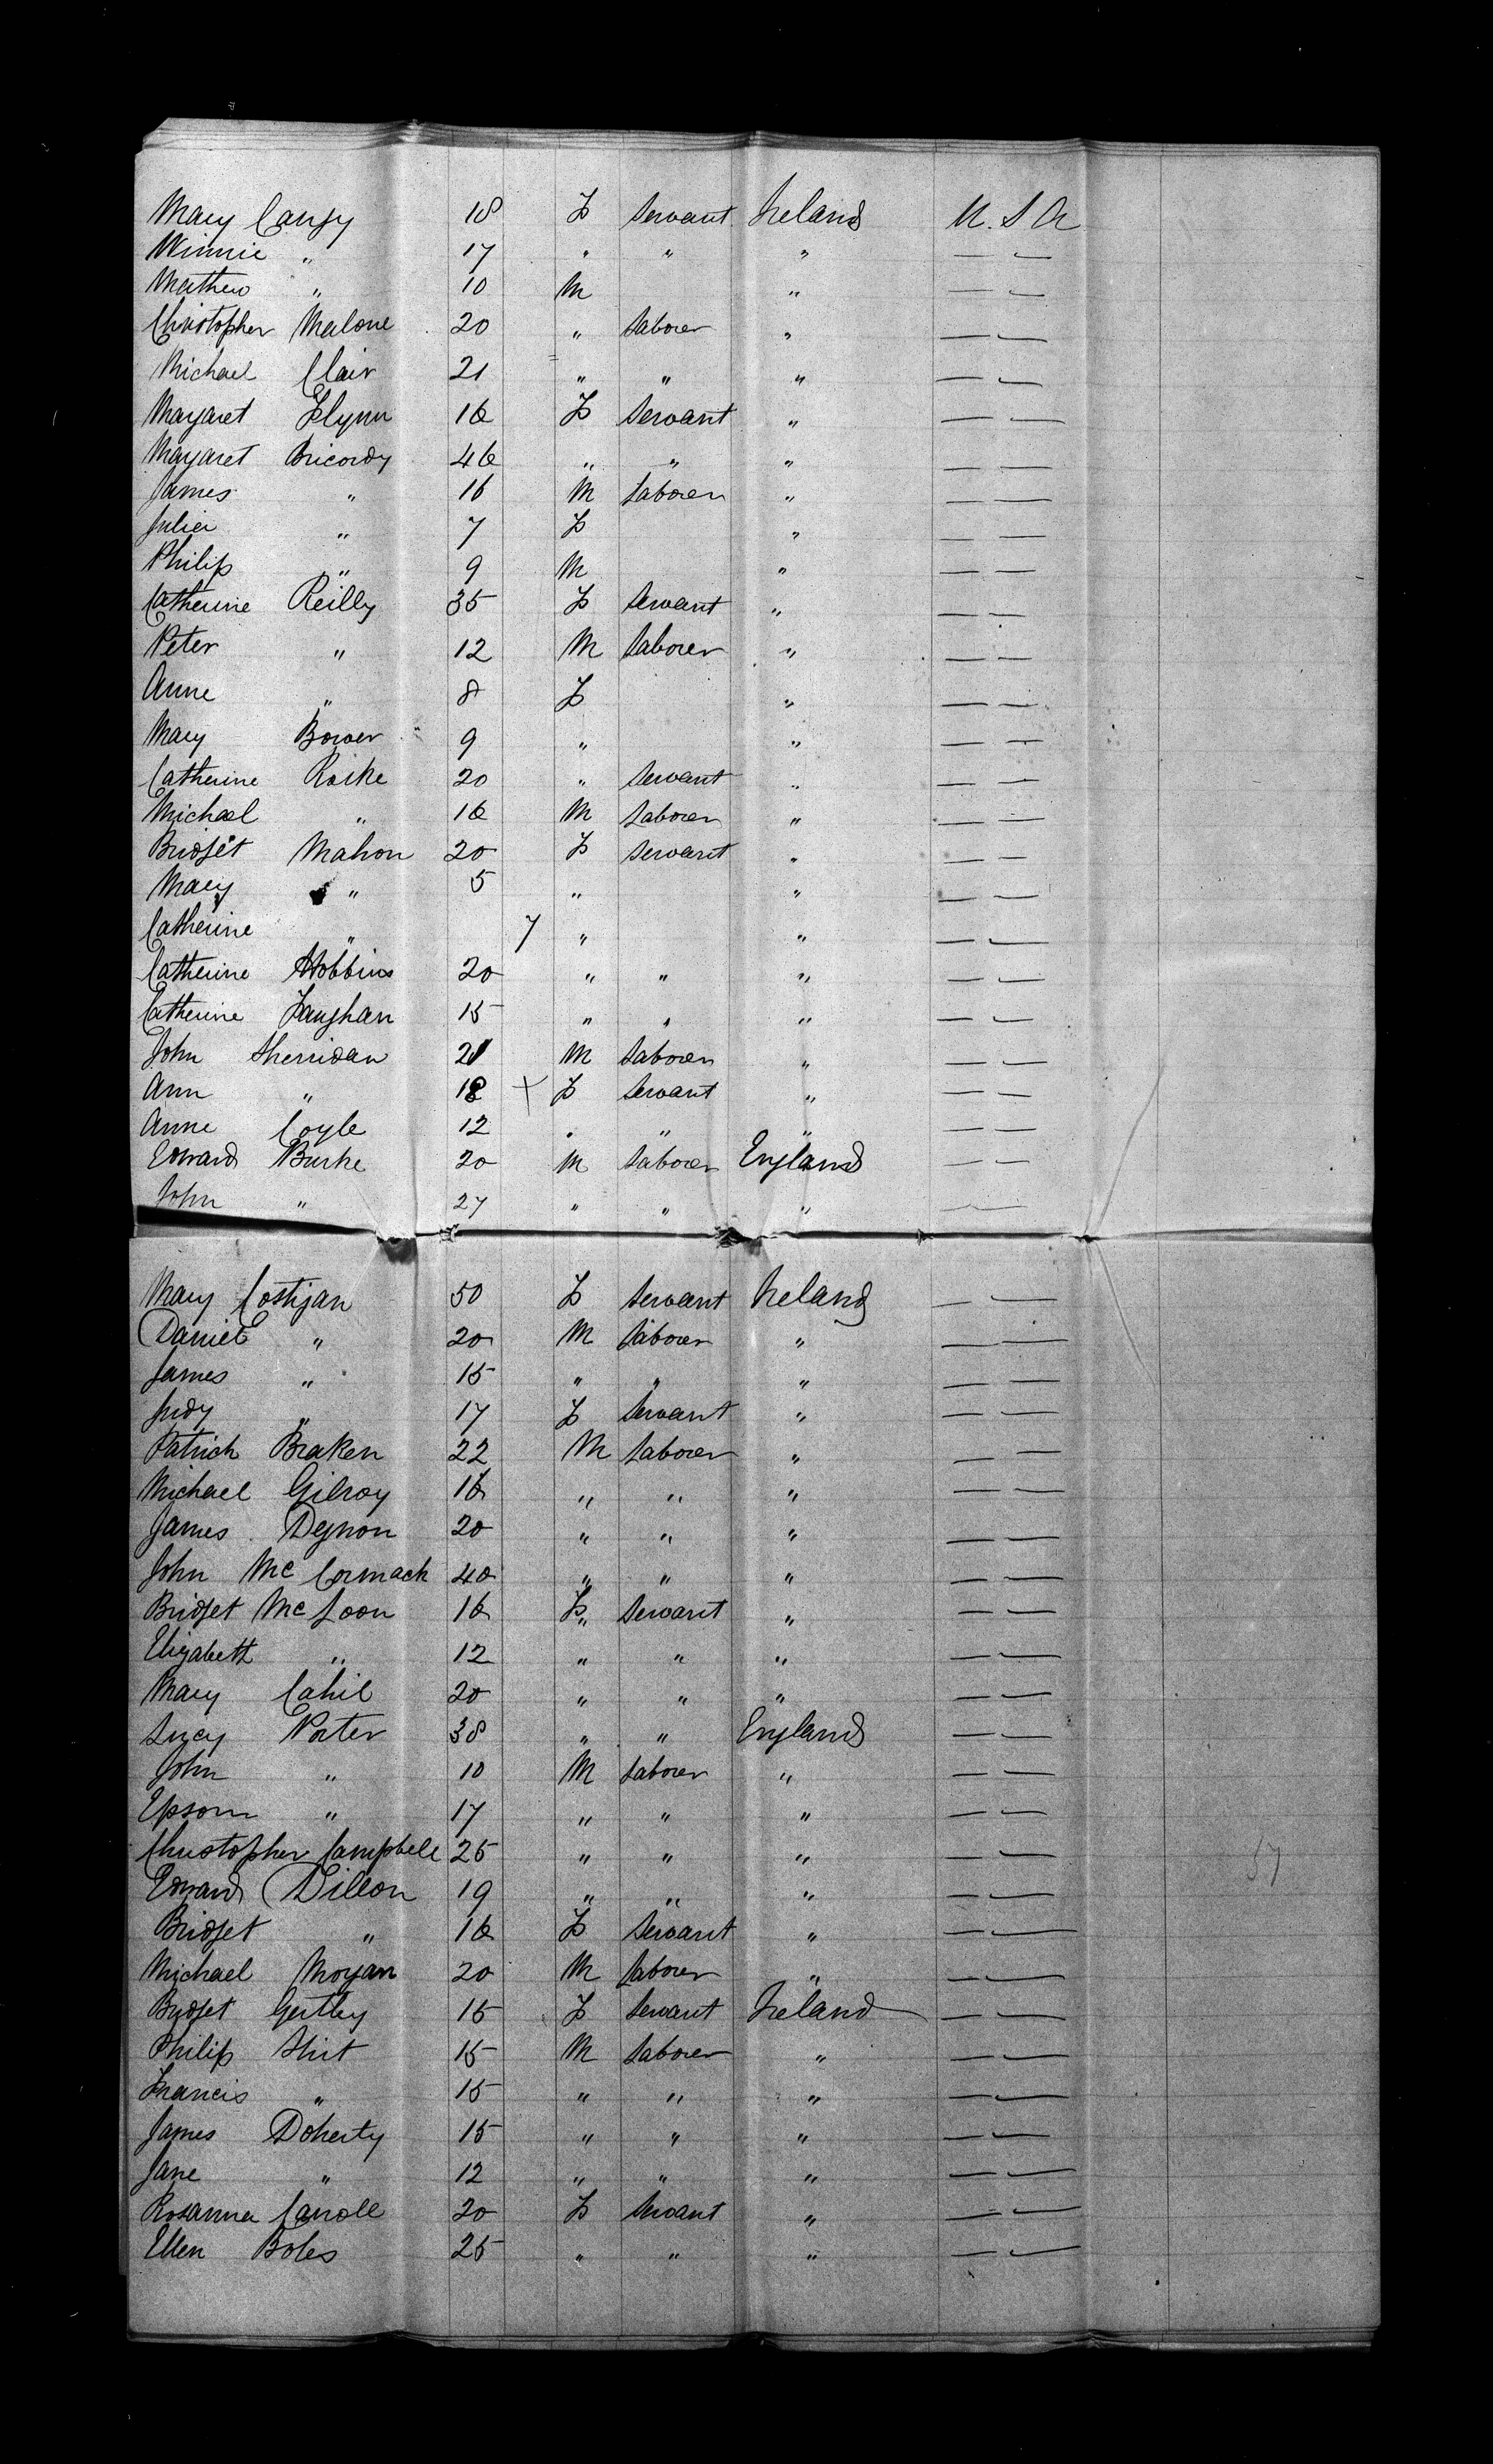 Mary Cangy 18 F Servant Ireland U. S A
Winnie " 17 " " " — —
Mathew " 10 M " — —
Christopher Malone 20 " Laborer " — —
Michael Clair 21 " " " — —
Margaret Flynn 16 F Servant " — —
Margaret 46 " " " — —
James " 16 M Laborer " — —
Julia " 7 F " — —
Philip " 9 M " — —
Catherine Reilly 35 F Servant " — —
Peter " 12 M Laborer " — —
Anne " 8 F " — —
Mary Bower 9 " " — —
Catherine Rorke 20 " Servant " — —
Michael " 16 M Laborer " — —
Bridget Mahon 20 F Servant " — —
Mary " 5 " " — —
Catherine " 7 " " — —
Catherine Hobbins 20 " " " — —
Catherine Faughan 15 " " " — —
John Sherridan 21 M Laborer " — —
Ann " 18 + F Servant " — —
Anne Coyle 12 " " " — —
Edward Burke 20 M Laborer England — —
John " 27 " " " — —
Mary Costigan 50 F Servant Ireland — —
Daniel " 20 M Laborer " — —
James " 15 " " " — —
Judy " 17 F Servant " — —
Patrick Braken 22 M Laborer " — —
Michael Gilroy 16 " " " — —
James Degnon 20 " " " — —
John Mc Cormack 40 " " " — —
Bridget Mc Loon 16 F " Servant " — —
Elizabeth " 12 " " " — —
Mary Cahil 20 " " " — —
Lucy Porter 38 " " England — —
John " 10 M Laborer " — —
Epsom " 17 " " " — —
Christopher Campbell 25 " " " — —
Edward Dillon 19 " " " — —
Bridget " 16 F Servant " — —
Michael Morgan 20 M Laborer " — —
Bridget Gertley 15 F Servant Ireland — —
Philip 15 M Laborer " — —
Francis " 15 " " " — —
James Doherty 15 " " " — —
Jane " 12 " " " — —
Rosanna Carroll 20 F Servant " — —
Ellen Boles 25 " " " — —
57